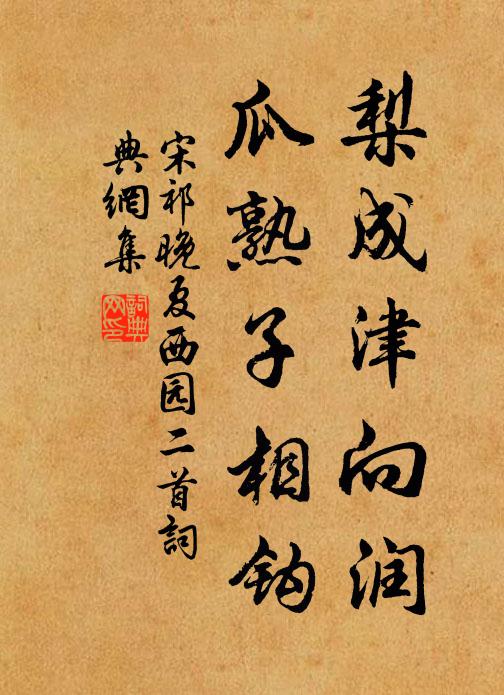 梨成津向润
瓜熟子相钩
宋祁晚夏西园二首詞
典網集
詞典网印